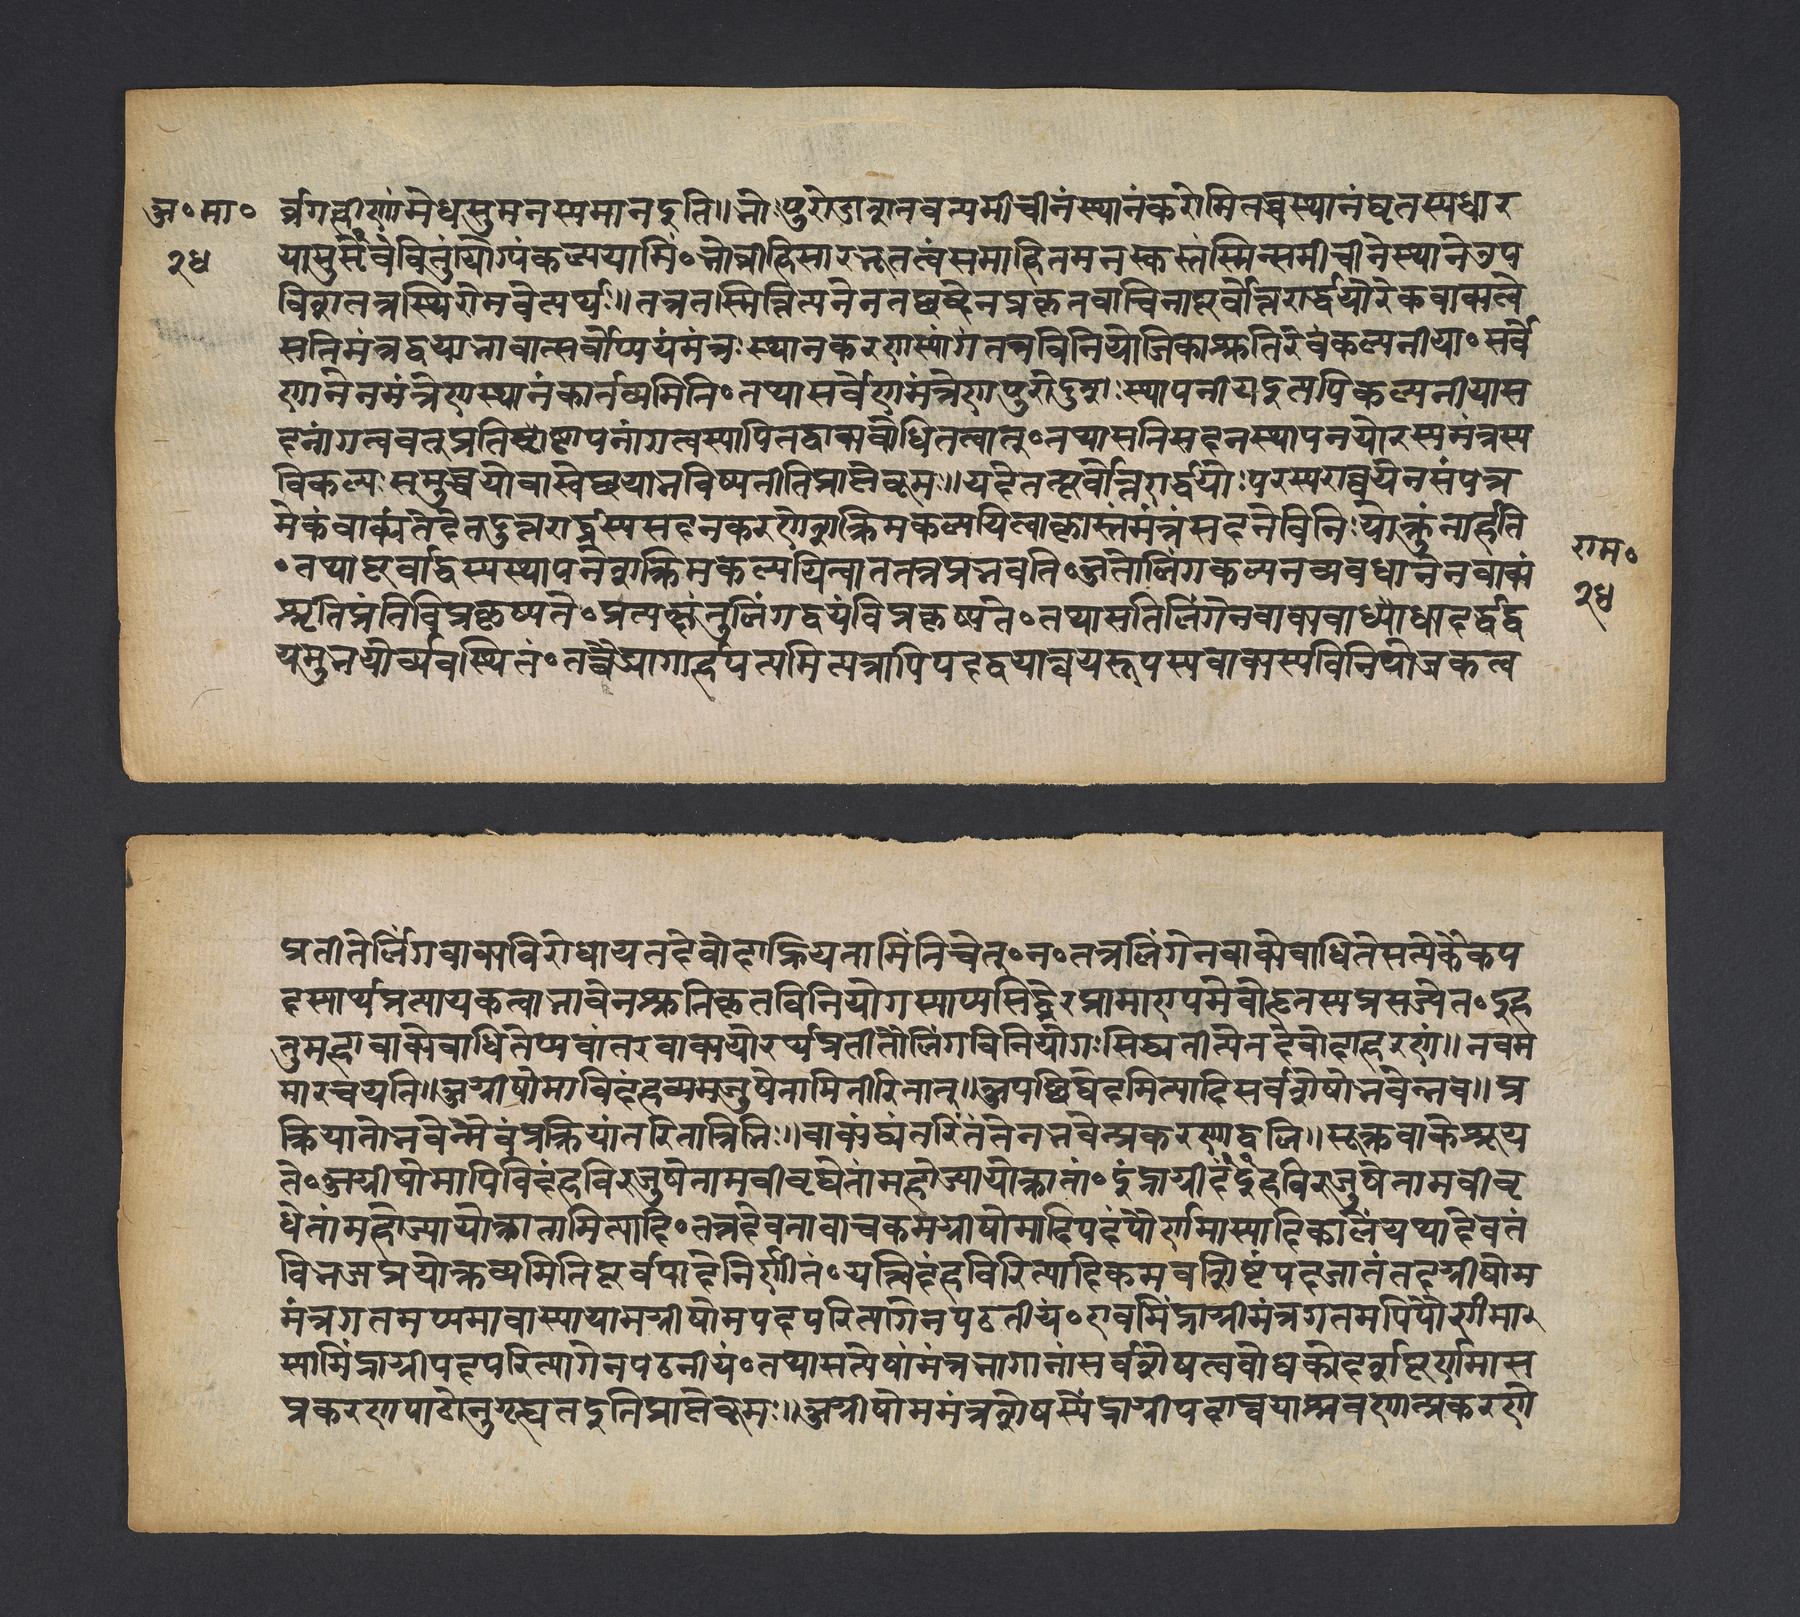 अ॰मा॰
२४
र्व्रगव्रीहीणांमेधसुमनस्यमानइति॥भोःपुरोडाशतवत्समीचीनंस्थानंकरोमितच्चस्थानंघृतस्यधार
यासुसेवंवेवितुंयोग्यंकल्पयामिं॰भोव्रीहिसारभूततत्वंसमाहितमनस्कस्तस्मिन्समीचीनेस्थानेउप
विशतत्रस्थिरोभवेत्यर्थः॥तत्रतस्मिन्नित्यनेनतच्छब्देनप्रकृतवाचिनापूर्वोत्तरार्द्धयोरेकवाक्यत्वे
सतिमंत्रद्वयाभावात्सर्वोप्ययंमंत्रःस्थानकरणस्यांगंतत्रविनियोजिकाश्रुतिरेवंकल्पनीया॰सर्वे
णानेनमंत्रेणस्थानंकर्त्तव्यमिति॰तथासर्वेणमंत्रेणपुरोडाशःस्थापनीयइत्यपिकल्पनीयास
दनांगत्ववत्प्रतिष्ठापनांगत्वस्यापितद्वाक्यबोधितत्वात्॰तथासतिसदनस्थापनयोरस्यमंत्रस्य
विकल्पःसमुच्चयोवास्वेच्छयाभविष्यतीतिप्राप्तेब्रूमः॥यदेतत्पूर्वोत्तरार्द्धयोःपरस्परान्वयेनसंपन्न
मेकंवाक्यंतदेतदुत्तरार्द्धस्यसदनकरणेशक्तिमकल्पयित्वाकृत्स्नंमंत्रंसदनेविनिःयोक्तुंनार्हति
॰तथापूर्वार्द्धस्यस्थापनेशक्तिमकल्पयित्वाततत्रप्रभवति॰अतोलिंगकल्पनव्यवधानेनवाक्यं
श्रुतिंप्रतिविप्रकृष्यते॰प्रत्यक्षंतुलिंगद्वयंविप्रकृष्यते॰तथासतिलिंगेनवाक्यबाधोधादर्द्धद्व
यमुभयोर्व्यवस्थितं॰तच्चैआगार्हपत्यमित्यत्रापिपदद्वयान्वयरूपस्यवाक्यस्यविनियोजकत्व
राम॰
२४
प्रतीतेर्लिंगवाक्यविरोधायतदेवोदाह्रियतामितिचेत्॰न॰तत्रलिंगेनवाक्येबाधितेसत्येकैकप
दस्यार्थप्रत्यायकत्वाभावेनश्रुतिकृतविनियोगस्याप्यसिद्धेरप्रामाण्यमेवोक्तस्यप्रसज्येत॰इह
तुमहावाक्येबाधितेप्यवांतरवाक्ययोरर्थप्रतीतौलिंगविनियोगःसिद्ध्यतीत्येतदेवोदाहरणं॥नवम
मारचयति॥अग्नीषोमाविदंहव्यमजुषेतामितीरितात्॥अपच्छिद्येदमित्यादिसर्वशेषोभवेन्नव॥प्र
क्रियातोभवेन्मैवंप्रक्रियांतरितात्रिभिः॥वाक्यंद्व्यंतरितंतेनभवेत्प्रकरणाद्बलि॥सूक्तवाकेश्रूय
ते॰अग्नीषोमापिविदंहविरजुषेतामवीवृधेतांमहोज्यायोक्रातां॰इंद्राग्नीइदंहविरजुषेतामवीवृ
धेतांमहोज्यायोक्रातामित्यादि॰तत्रदेवतावाचकमग्नीषोमादिपदंपौर्णमास्यादिकालेयथादेवतं
विभज्यप्रयोक्तव्यमितिपूर्वपादेनिर्णीतं॰यत्त्विदंहविरित्यादिकमवशिष्टंपदजातंतदग्नीषोम
मंत्रगतमप्यमावास्यायामग्नीषोमपदपरित्यागेनपठनीयं॰एवमिंद्राग्नीमंत्रगतमपिपौर्णमा
स्यामिंद्राग्नीपदपरित्यागेनपठनीयं॰तथासत्येषांमंत्रभागानांसर्वशेषत्वबोधकोदर्शपूर्णमास
प्रकरणपाठोनुगृह्यतइतिप्राप्तेब्रूमः॥अग्नीषोममंत्रशेषस्येंद्राग्नीपदान्वयाश्रवणात्प्रकरणे